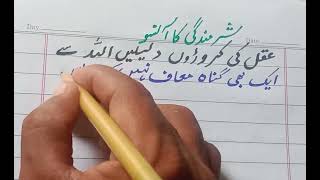 شرمندگی کا آنسو
عقل کی کروڑوں دلیلیں اللہ سے
ایک بھی گناہ معاف نہیں